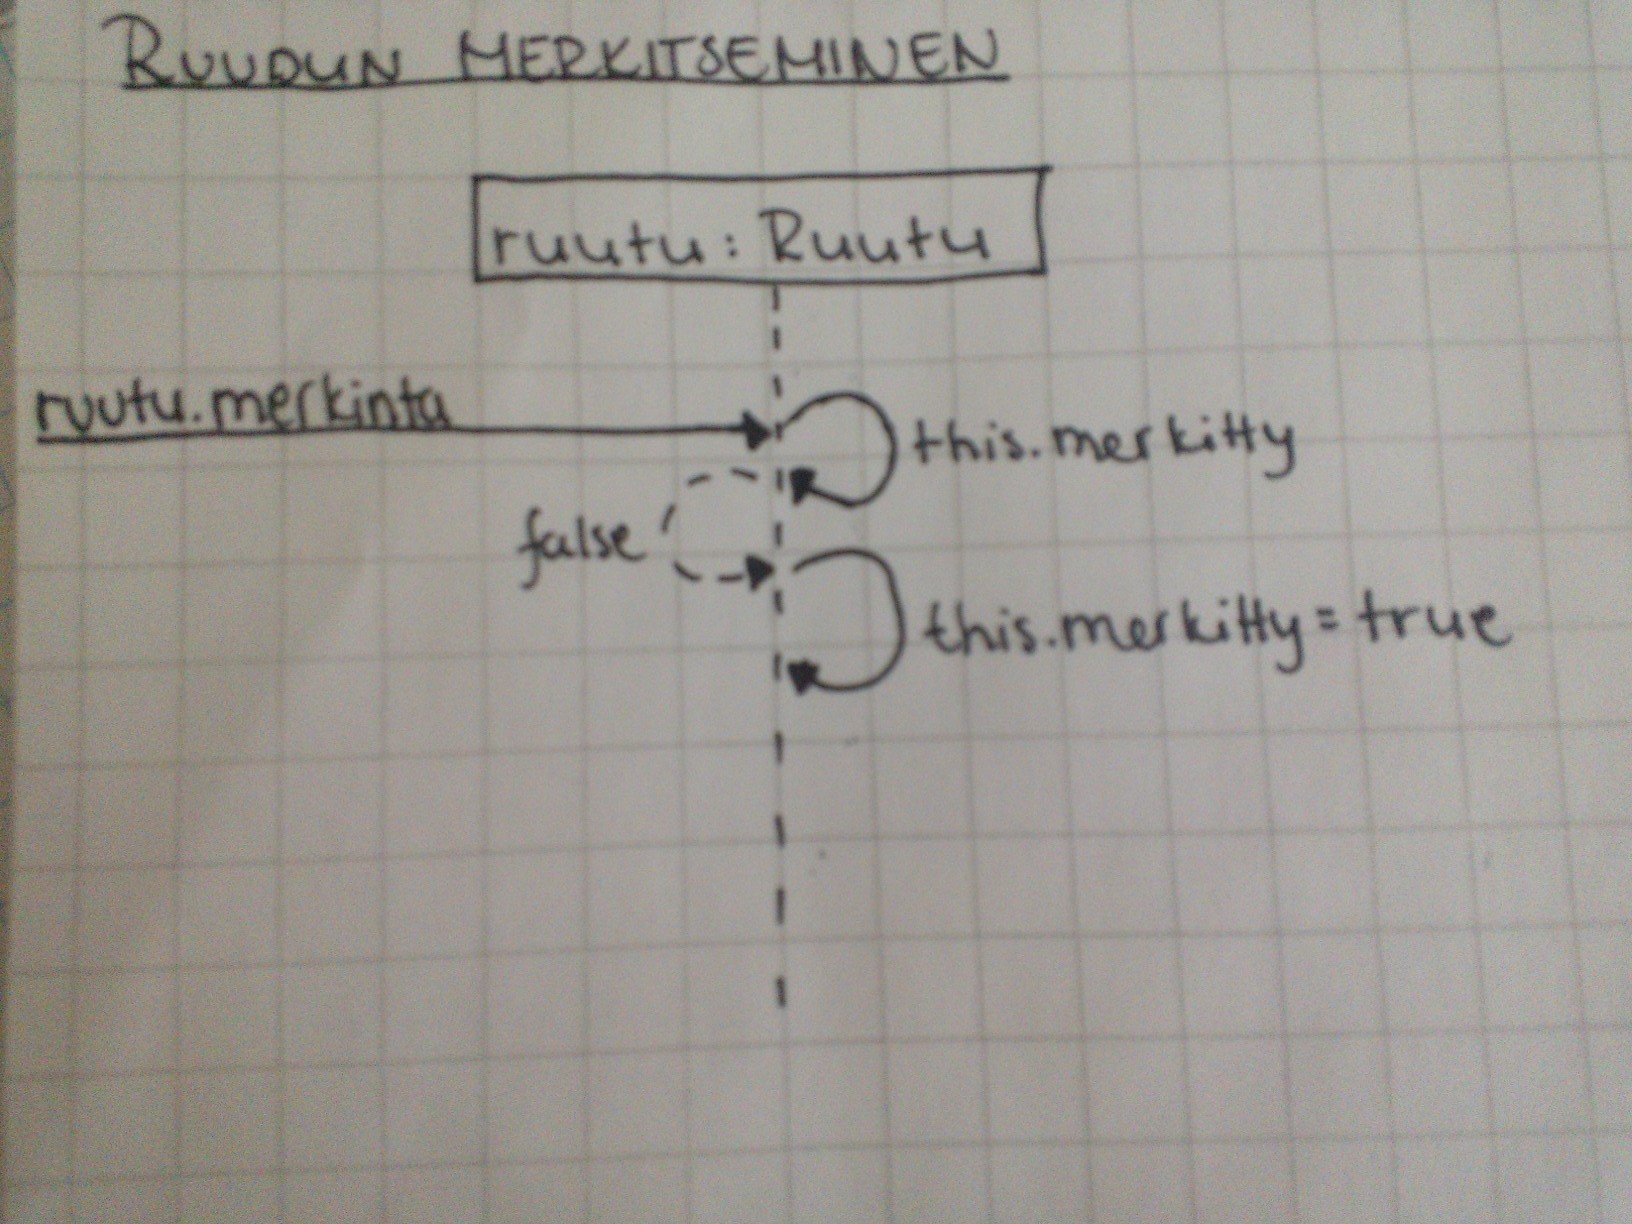 RUUDUN MERKITSEMINEN
ruutu: Ruutu
ruutu.merkinta
this.merkitty
false
this.merkitty = true